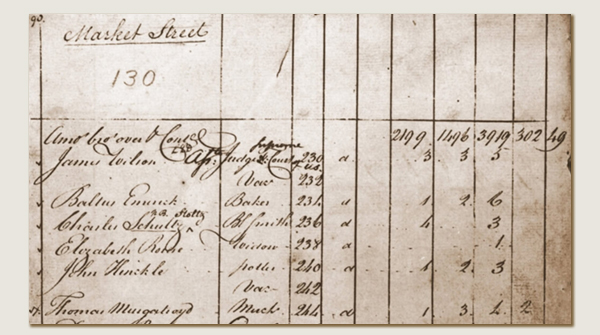 90.
Market Street
130
Amot. brot. over & Contd 2199 1496 3919 302 49
Supreme
James Wilson Ass: Judge Court 230 a 3 3 5
of U.S.
Vact 232
Baltus Emrick Baker 234 a 1 2 6
Charles Schultz Bl. Smith 236 a 4 3
Elizabeth widow 238 a 1
John Hinckle potter 240 a 1 2 3
Vac: 242
Thomas Murgatroyd Mercht 244 a 1 3 4 2